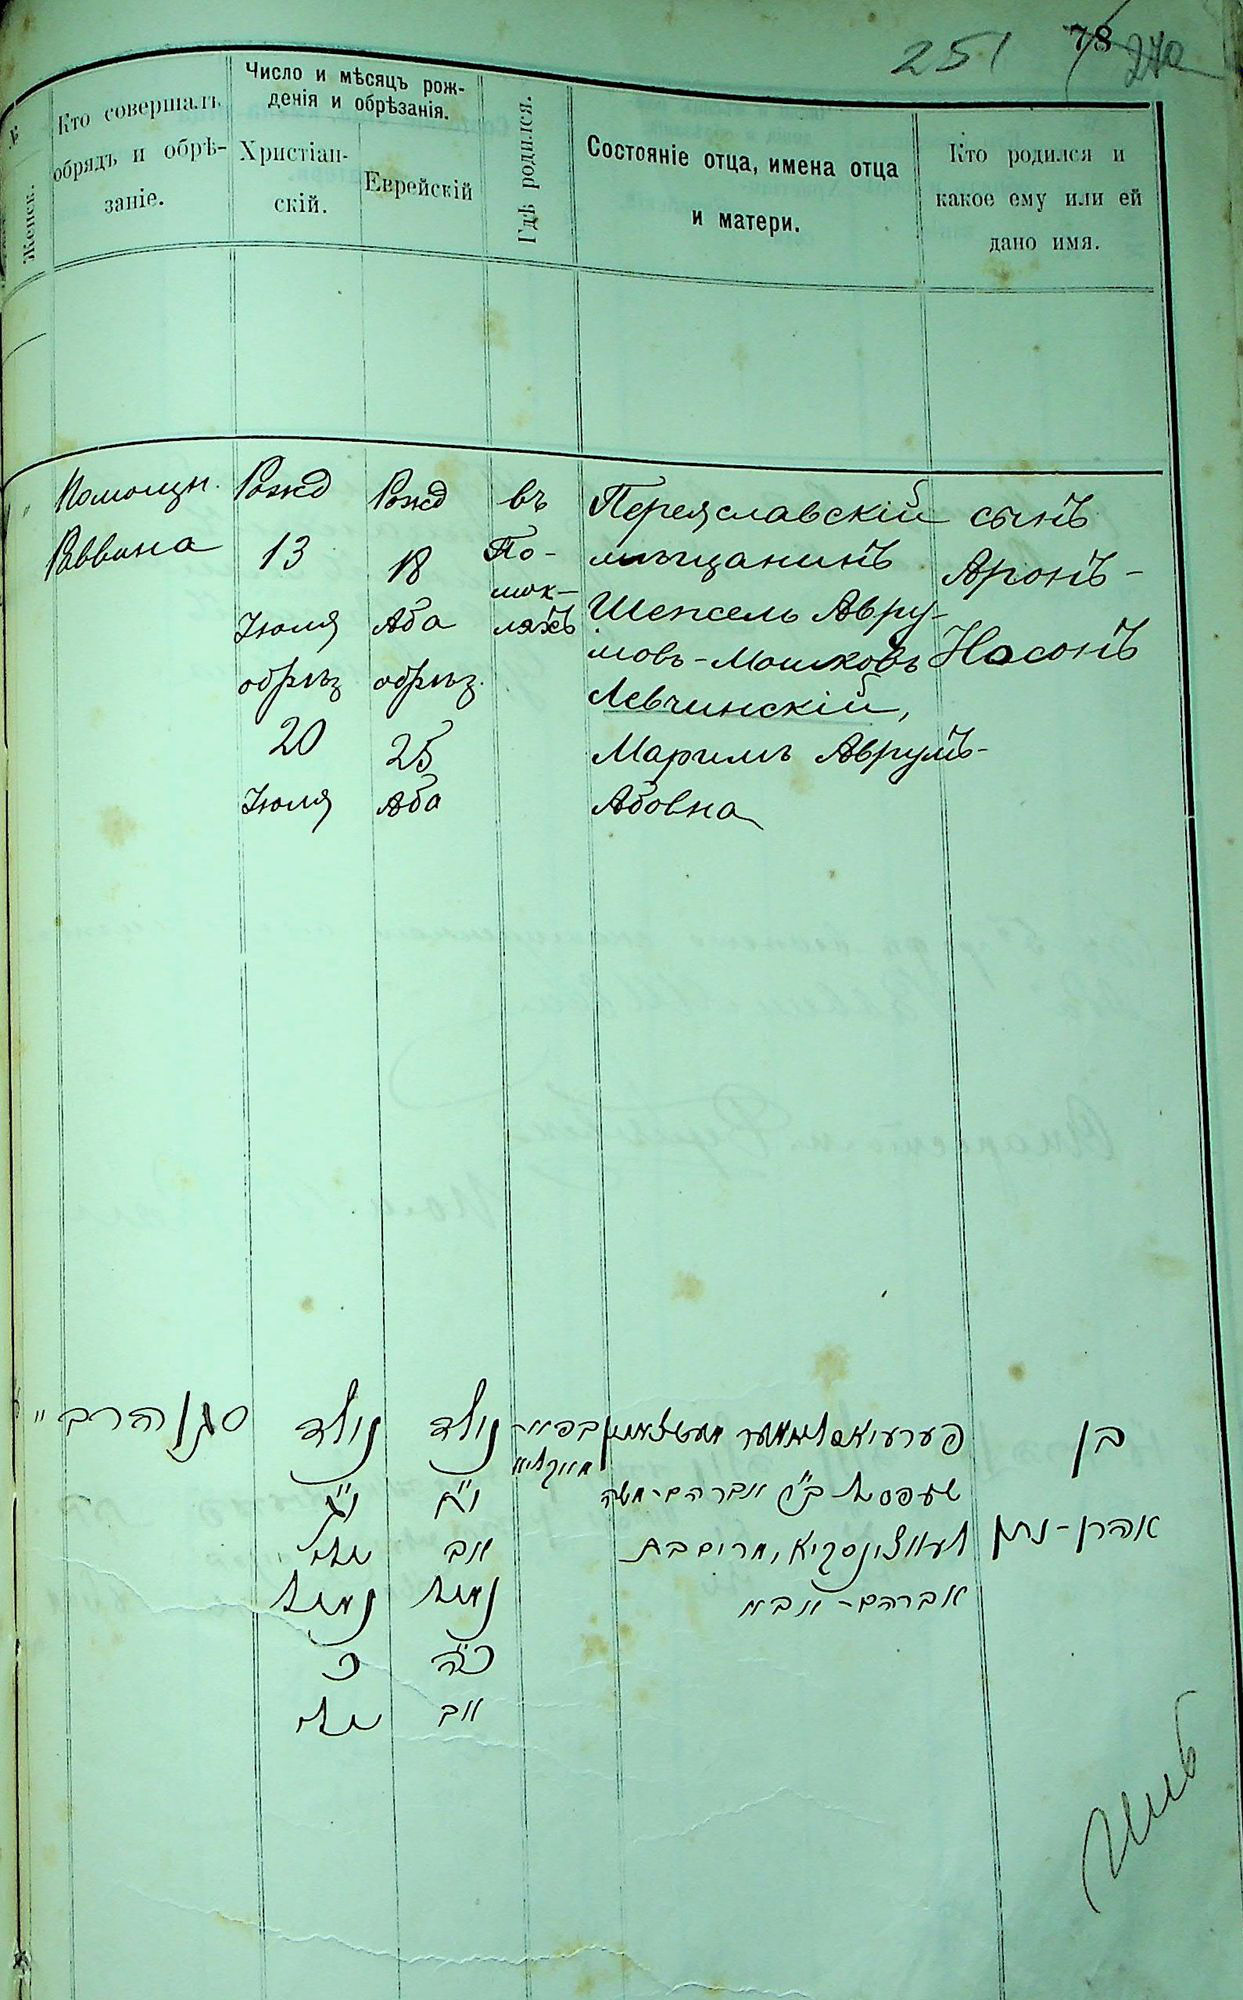 251
78
270
№
Женск.
Кто совершалъ
обрядъ и обрѣ-
заніе.
Число и мѣсяцъ рож-
денія и обрѣзанія.
Христіан-
скій.
Еврейскій
Гдѣ родился.
Состояніе отца, имена отца
и матери.
Кто родился и
какое ему или ей
дано имя.
Помощн.
Раввина
Рожд
13
Іюля
обрѣз
20
Іюля
Рожд
18
Аба
обрѣз.
25
Аба
въ
По-
мок-
ляхъ
Переяславскій
мѣщанинъ
Шепсель Авру-
мовъ-Мошковъ
Левчинскій,
Маримъ Аврумъ-
Абовна
сынъ
Аронъ-
Насонъ
סגן הרב "
נולד
י"ג
יולי
נימול
כ
יולי
נולד
י"ח
אב
נימול
כ"ה
אב
שעפסיל ב"ר אברהם-משה
לעווצינסקיא, מרים בת
אברהם-אבא
בן
אהרן-נתן